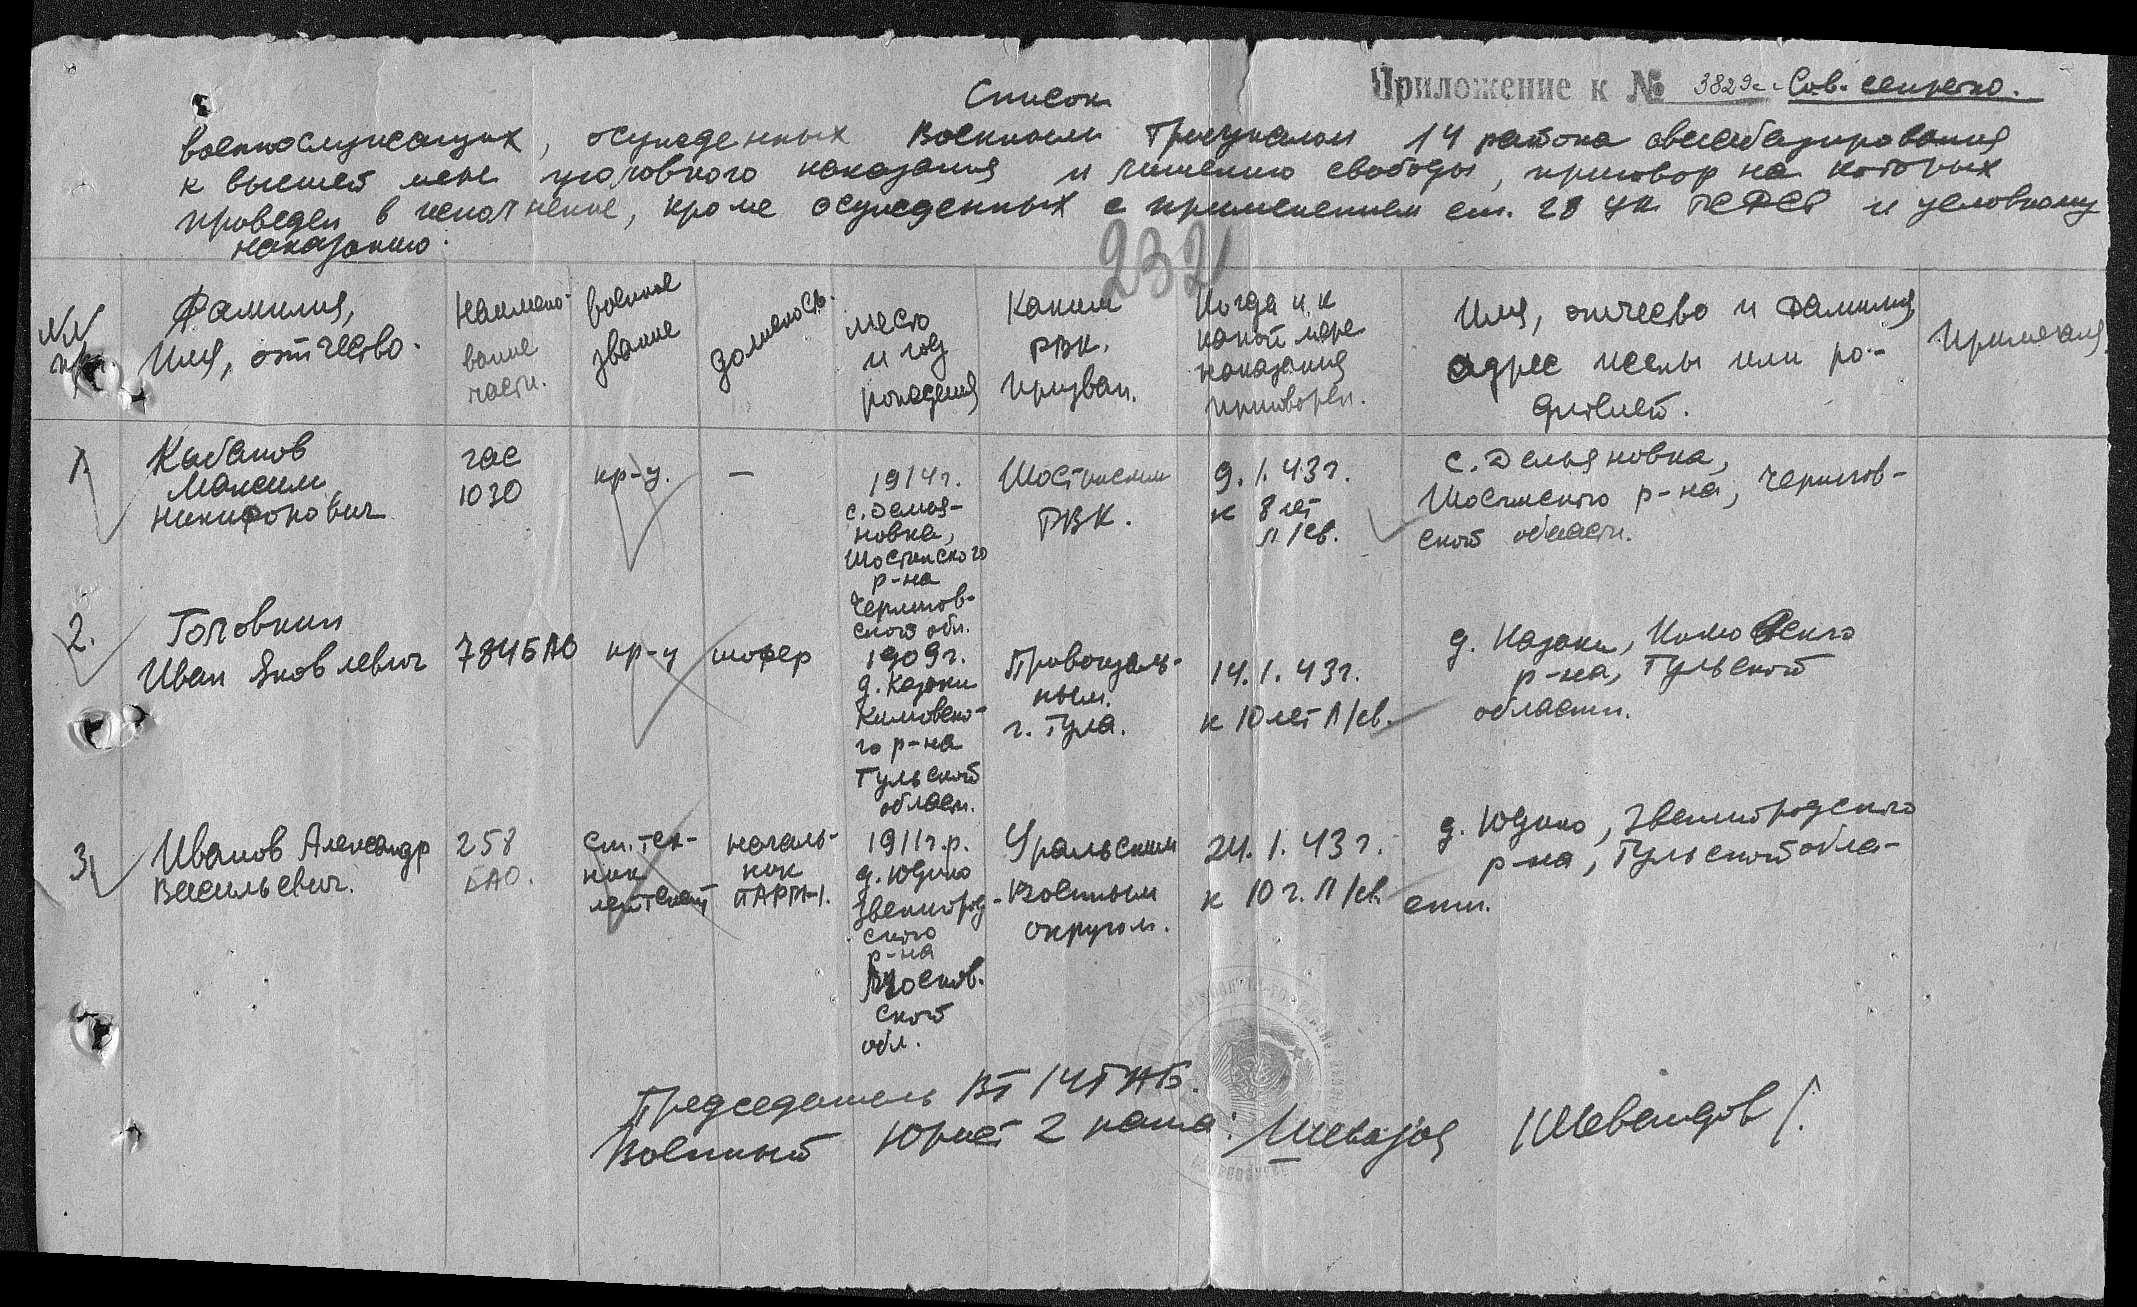 Приложение к № 3829с Сов. секретно.
Список
военнослужащих, осужденных Военным Трибуналом 14 района авиабазирования
к высшей мере уголовного наказания и лишению свободы, приговор на которых
проведен в исполнение, кроме осужденных с применением ст. 28 УК РСФСР и условному
наказанию.
232
NN
п/п
Фамилия,
Имя, отчество.
Наимено-
вание
части.
Военное
звание
Должность.
Место
и год
рождения
Каким
РВК.
Призван.
Когда и к
какой мере
наказания
приговорен.
Имя, отчество и фамилия,
адрес жены или ро-
дителей.
Примечан.
1.
Кабанов
Максим
Никифорович
гас
1030
кр-ц.
—
1914г.
с. Демья-
новка,
Шостинского
р-на
Чернигов-
ской обл.
Шостинским
РВК.
9.1.43г.
к 8 лет
л/св.
с. Демьяновка,
Шостинского р-на, Чернигов-
ской области.
2.
Головкин
Иван Яковлевич
784БАО
кр-ц
шофер
1909г.
д. Казаки
Кимовско-
го р-на
Тульской
области.
Привокзаль-
ным.
г. Тула.
14.1.43г.
к 10 лет л/св.
д. Казаки, Кимовского
р-на, Тульской
области.
3.
Иванов Александр
Васильевич.
258
БАО.
ст. тех-
ник
лейтенант
началь-
ник
ПАРМ-1.
1911г.р.
д. Юдино
Звенигород-
ского
р-на
Москов-
ской
обл.
Уральским
Военным
округом.
24.1.43г.
к 10 г. л/св.
д. Юдино, Звенигородского
р-на, Тульской обла-
сти.
Председатель ВТ 14РАБ.
Военный Юрист 2 ранга:
/Шевандов/.